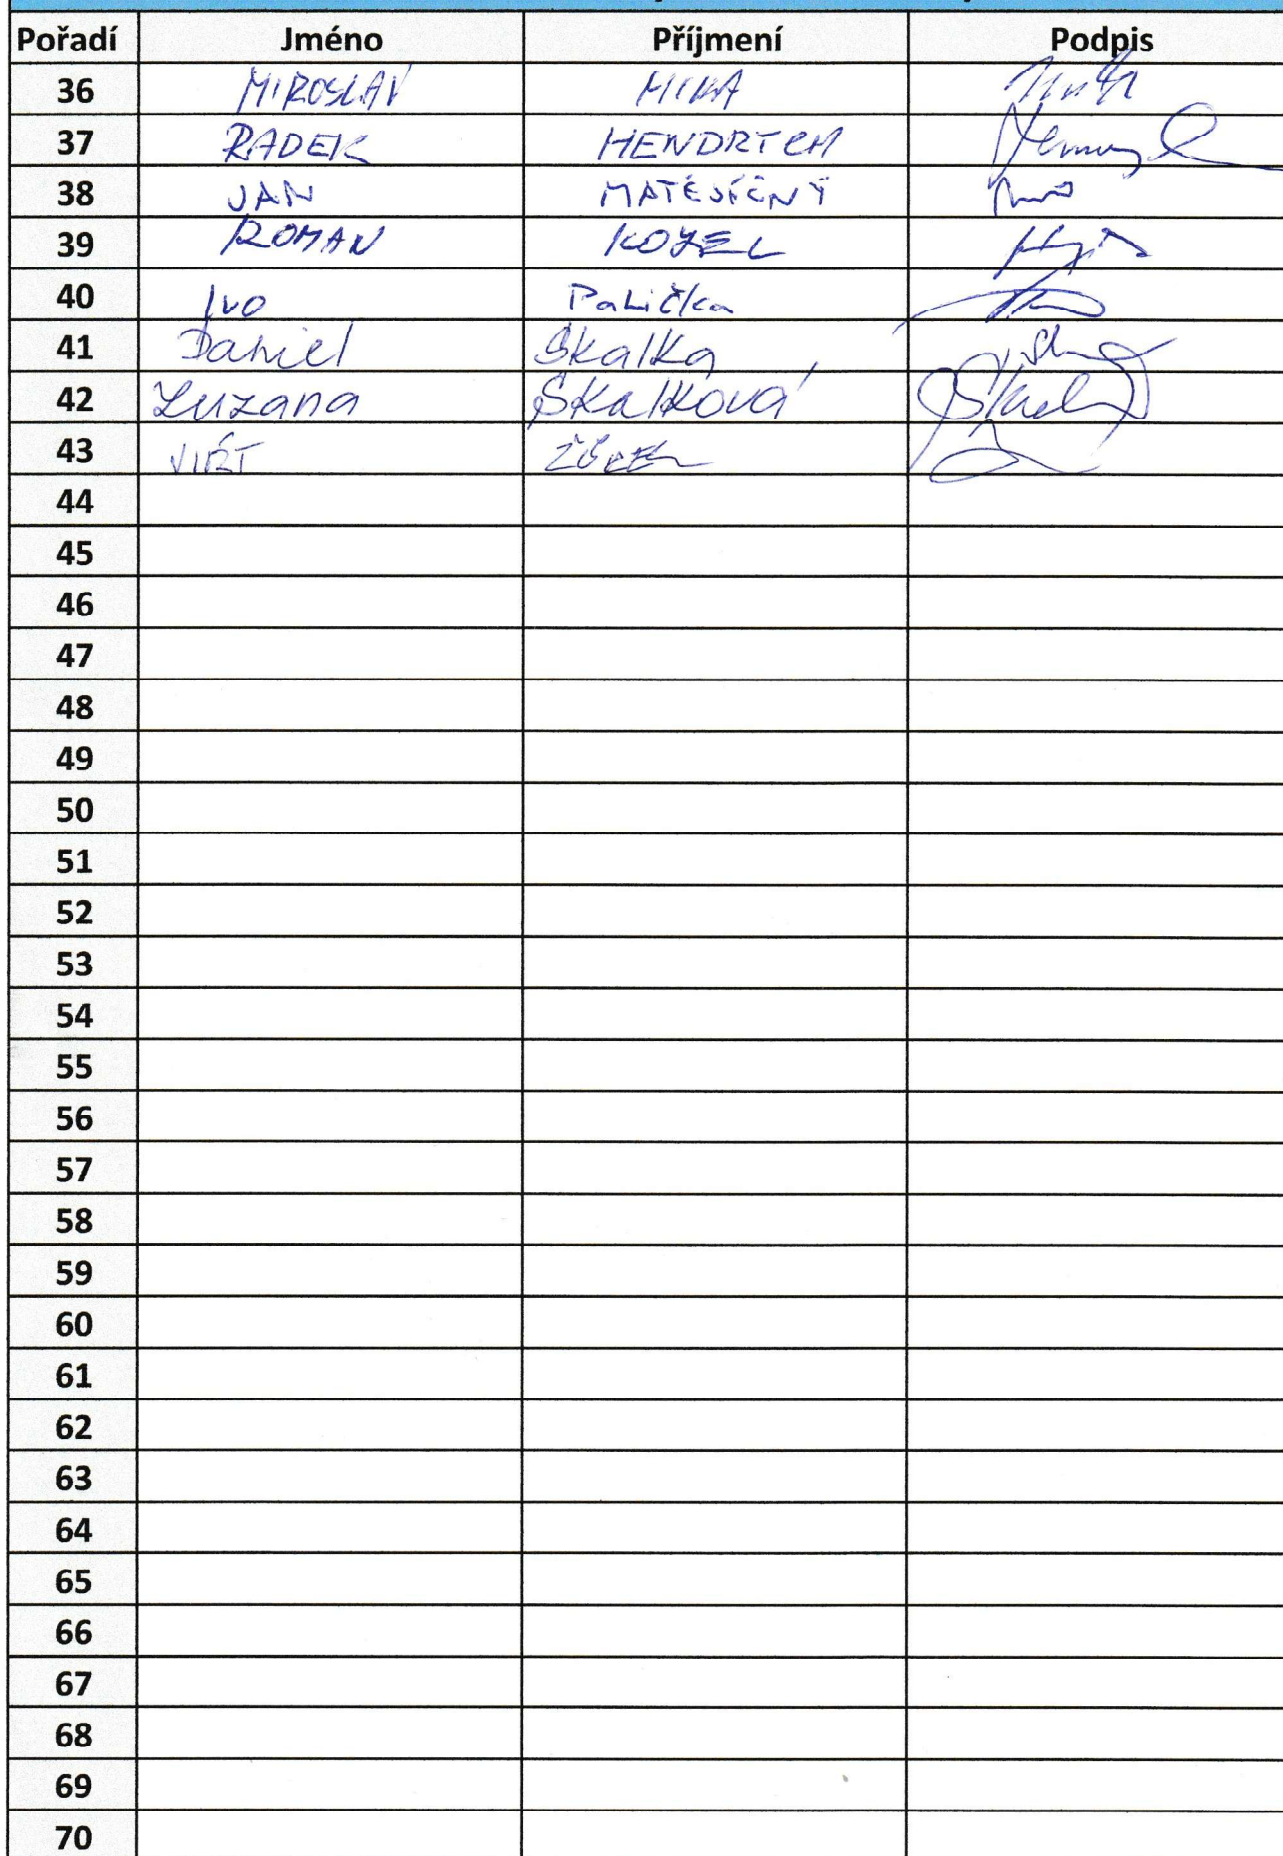 Pořadí Jméno Příjmení Podpis
36 MIROSLAV MIKA
37 RADEK HENDRICH
38 JAN MATĚSÍČNÝ
39 ROMAN KOZEL
40 Ivo Palička
41 Daniel Skalka
42 Zuzana Skalková
43
44
45
46
47
48
49
50
51
52
53
54
55
56
57
58
59
60
61
62
63
64
65
66
67
68
69
70